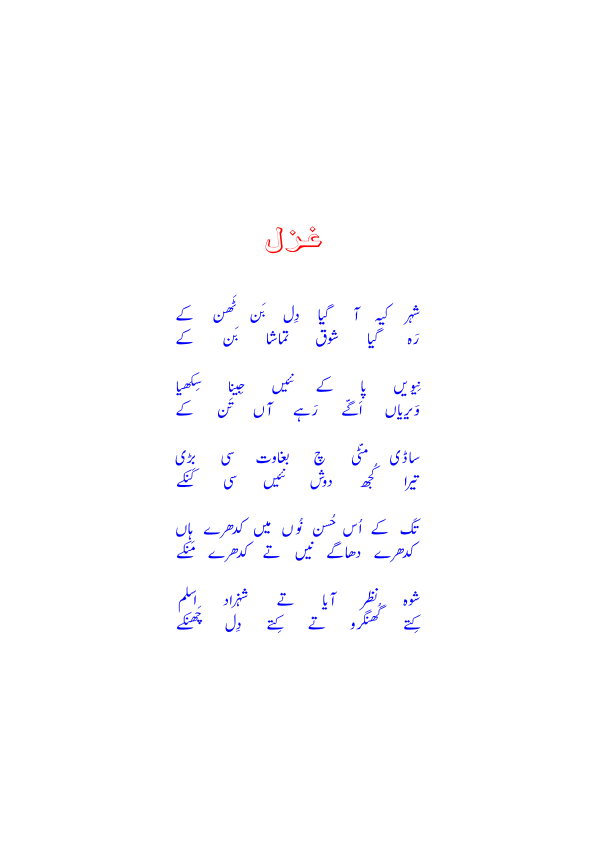 غزل
شہر کیہ آ گیا دِل بَن ٹَھن کے
رَہ گیا شوق تماشا بَن کے
نِیویں پا کے نئیں جِینا سِکھیا
وَیریاں اَگّے رَہے آں تَن کے
ساڈی مٹّی چ بغاوت سی بڑی
تیرا کُجھ دوش نئیں سی گَنکے
تَک کے اُس حُسن نُوں میں کدھرے ہاں
کدھرے دھاگے نیں تے کدھرے مَنکے
شوہ نظر آیا تے شہزاد اسلم
کِتے گُھنگرو تے کِتے دِل چَھنکے